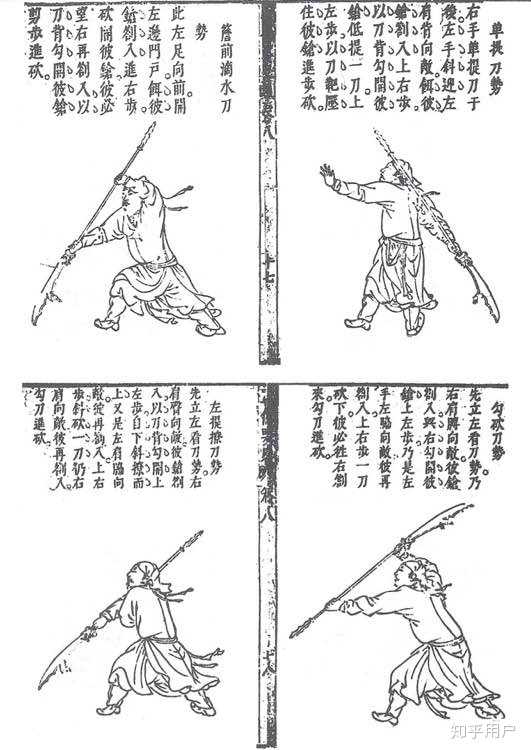 單提刀勢
右手單提刀于
後左手斜迎左
肩背向敵餌彼
鎗劄入上右步
以刀背勾開彼
鎗低提一刀上
左步以刀靶壓
住彼鎗進步砍
卷八
十七
簷前滴水刀
勢
此左足向前開
左邊門戶餌彼
鎗劄入進右步
砍開彼鎗彼必
望右再劄入以
刀背勾開彼鎗
剪步進砍
勾砍刀勢
先立左看刀勢乃
右肩向敵彼鎗
劄入右勾開彼
鎗上左步乃是左
手左脇向敵彼再
劄入上右步一刀
砍下彼必往右劄
來勾刀進砍
卷八
十八
左提撩刀勢
先立左看刀勢右
肩臂向敵彼鎗劄
入以刀背勾開上
左步自下斜撩而
上又是左肩脇向
敵彼再劄入上右
步斜砍一刀仍右
肩向敵彼再劄入
勾刀進砍
知乎用户